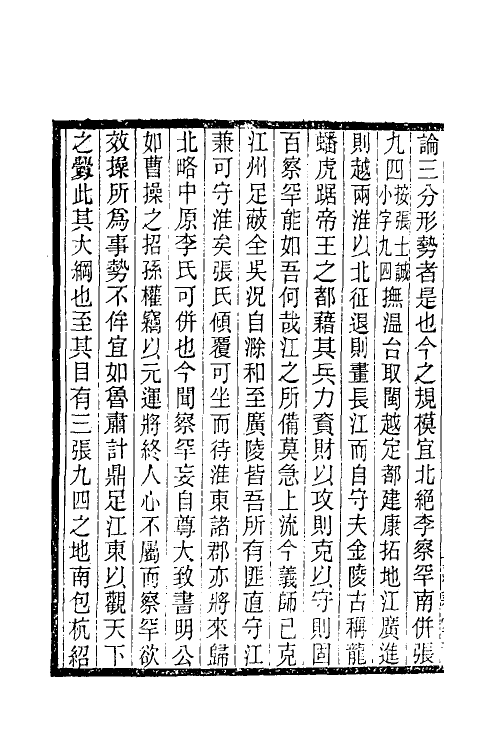 論三分形勢者是也今之規模宜北絕李察罕南併張
九四按張士誠小字九四撫溫台取閩越定都建康拓地江廣進
則越兩淮以北征退則畫長江而自守夫金陵古稱龍
蟠虎踞帝王之都藉其兵力資財以攻則克以守則固
百察罕能如吾何哉江之所備莫急上流今義師已克
江州足蔽全吳況自滁和至廣陵皆吾所有匪直守江
兼可守淮矣張氏傾覆可坐而待淮東諸郡亦將來歸
北略中原李氏可併也今聞察罕妄自尊大致書明公
如曹操之招孫權竊以元運將終人心不屬而察罕欲
效操所為事勢不侔宜如魯肅計鼎足江東以觀天下
之釁此其大綱也至其目有三張九四之地南包杭紹